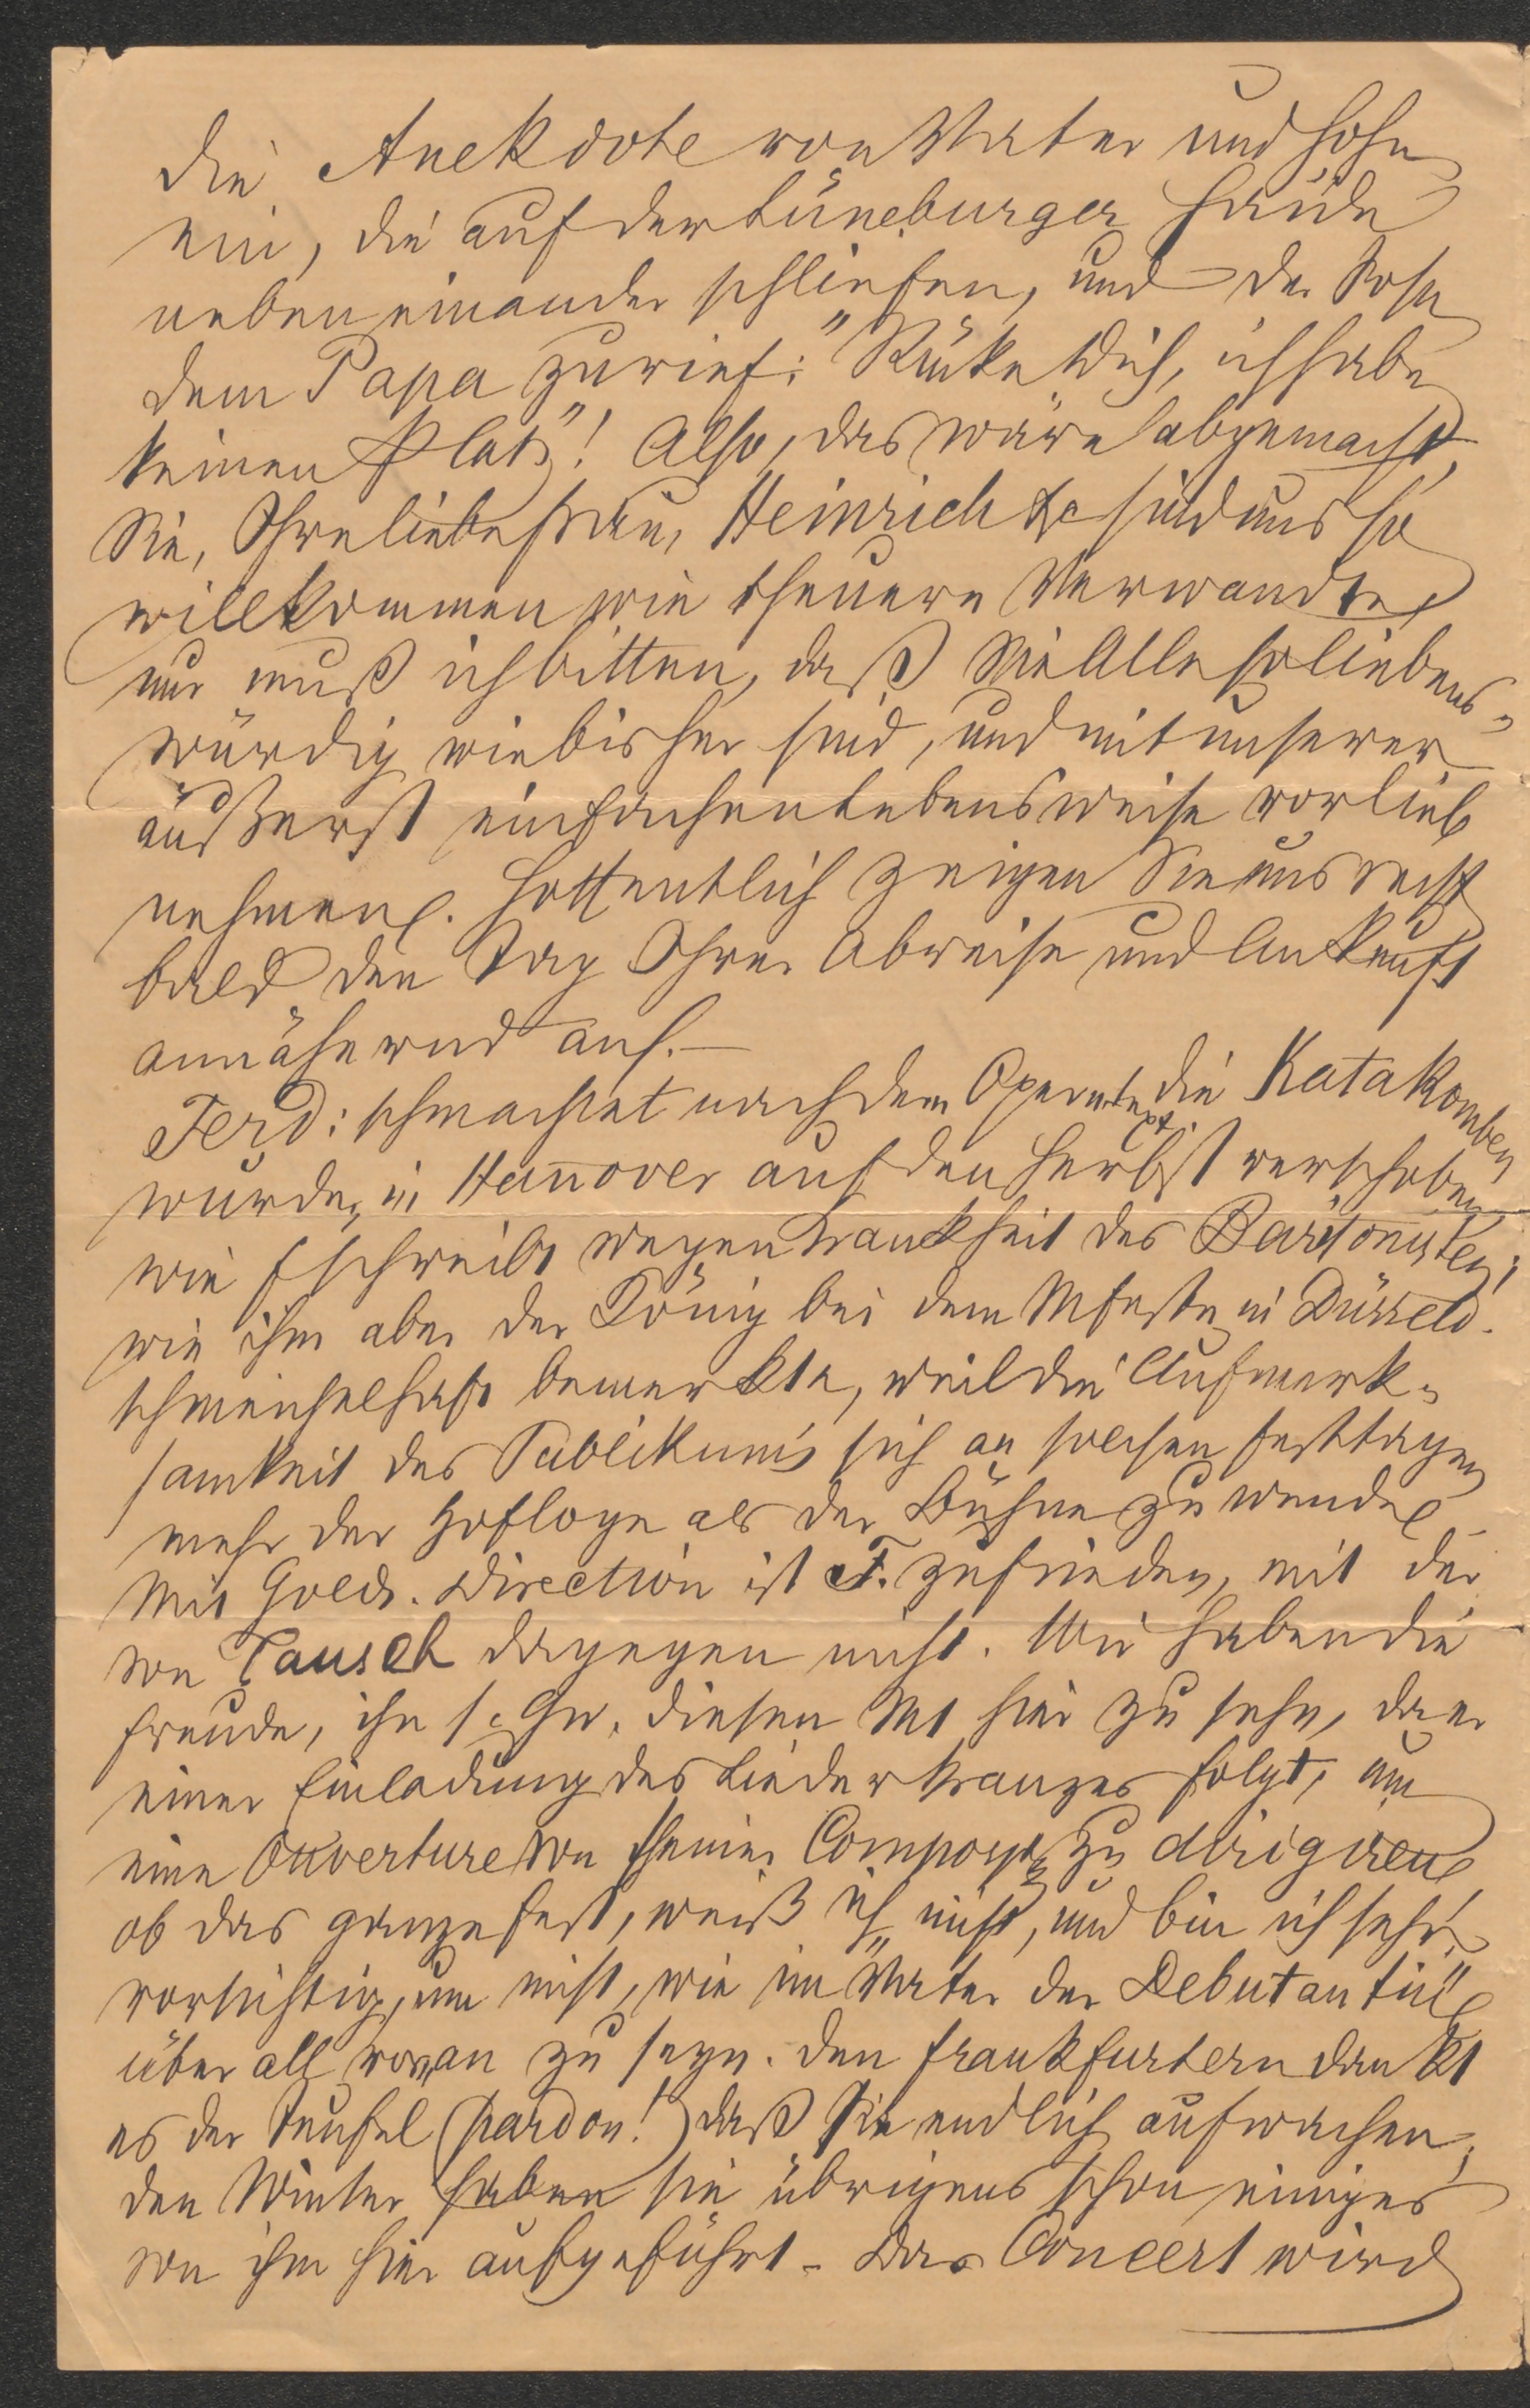 die Anekdote von Vater und Sohn
ein, die auf der Lüneburger Haide
neben einander schliefen, und der Sohn
dem Papa zurief: "Rücke Dich, ich habe
keinen Platz"! Also, das wäre abgemacht,
Sie, Ihre liebe Frau, Heinrich &c sind uns so
willkommen wie theuere Verwandte,
nur muß ich bitten, daß Sie Alle so liebens-
würdig wie bisher sind, und mit unserer
äußerst einfachen Lebensweise vorlieb
nehmen. Hoffentlich zeigen Sie uns recht
bald den Tag Ihrer Abreise und Ankunft
annähernd an.—
Ferd: schmachtet nach dem Operntext. die Katakomben
wurden in Hannover auf den Herbst verschoben
wie F schreibt wegen Krankheit des Baritonisten;
wie ihm aber der König bei dem Mfeste in Düsseld.
schmeichelhaft bemerkte, weil die Aufmerk-
samkeit des Publikums sich an solchen Festtagen
mehr der Hofloge als der Bühne zuwende.
Mit Golds. Direction ist F. zufrieden, mit der
von Tausch dagegen nicht. Wir haben die
Freude, ihn s. Gw. diesen Mt hier zu sehn, da er
einer Einladung des Liederkranzes folgt, um
eine Ouverture von seiner Compos. zu dirigiren
ob das ganze fest, weiß ich nicht, und bin ich sehr
vorsichtig, um nicht, wie im "Vater der Debutantin"
über all voran zu seyn. Den Frankfurtern dankt
es der Teufel (pardon!) daß sie endlich aufwachen,
den Winter haben sie übrigens schon einiges
von ihm hier aufgeführt. Das Concert wird